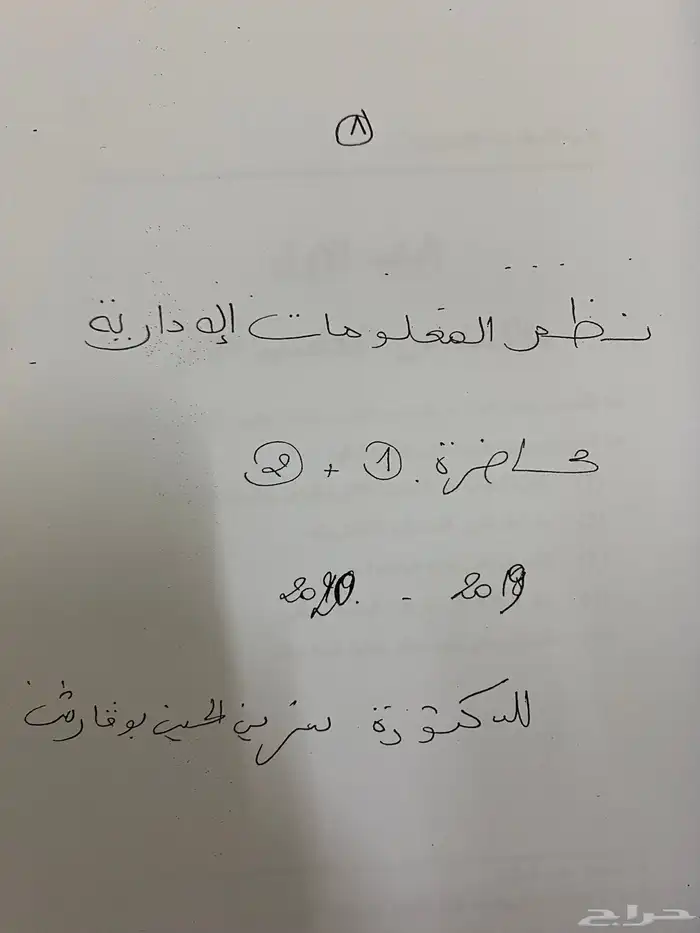 ٨
نظم المعلومات الإدارية
محاضرة 1 + 2
2019 - 2020
للدكتورة الحسين
حراج